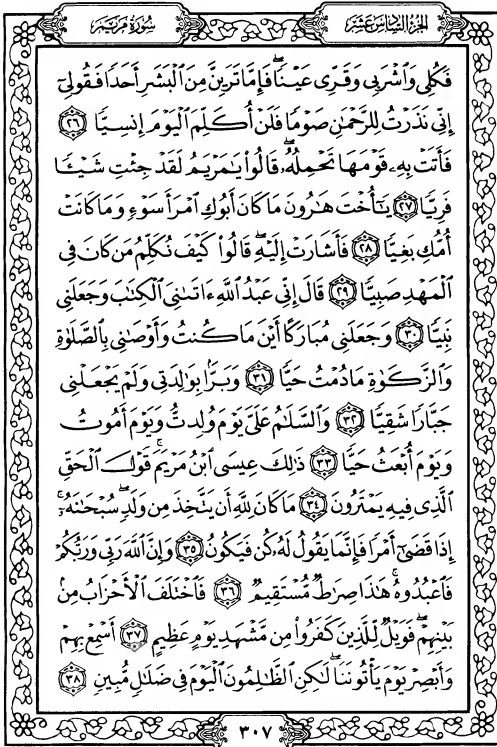 الجزء السادس عشر
سورة مريم
فَكُلِي وَاشْرَبِي وَقَرِّي عَيْنًا ۖ فَإِمَّا تَرَيِنَّ مِنَ الْبَشَرِ أَحَدًا فَقُولِي
إِنِّي نَذَرْتُ لِلرَّحْمَٰنِ صَوْمًا فَلَنْ أُكَلِّمَ الْيَوْمَ إِنسِيًّا ٢٦
فَأَتَتْ بِهِ قَوْمَهَا تَحْمِلُهُ ۖ قَالُوا يَا مَرْيَمُ لَقَدْ جِئْتِ شَيْئًا
فَرِيًّا ٢٧ يَا أُخْتَ هَارُونَ مَا كَانَ أَبُوكِ امْرَأَ سَوْءٍ وَمَا كَانَتْ
أُمُّكِ بَغِيًّا ٢٨ فَأَشَارَتْ إِلَيْهِ ۖ قَالُوا كَيْفَ نُكَلِّمُ مَن كَانَ فِي
الْمَهْدِ صَبِيًّا ٢٩ قَالَ إِنِّي عَبْدُ اللَّهِ ءَاتَانِيَ الْكِتَابَ وَجَعَلَنِي
نَبِيًّا ٣٠ وَجَعَلَنِي مُبَارَكًا أَيْنَ مَا كُنتُ وَأَوْصَانِي بِالصَّلَوٰةِ
وَالزَّكَوٰةِ مَا دُمْتُ حَيًّا ٣١ وَبَرًّا بِوَالِدَتِي وَلَمْ يَجْعَلْنِي
جَبَّارًا شَقِيًّا ٣٢ وَالسَّلَامُ عَلَيَّ يَوْمَ وُلِدتُّ وَيَوْمَ أَمُوتُ
وَيَوْمَ أُبْعَثُ حَيًّا ٣٣ ذَٰلِكَ عِيسَى ابْنُ مَرْيَمَ ۚ قَوْلَ الْحَقِّ
الَّذِي فِيهِ يَمْتَرُونَ ٣٤ مَا كَانَ لِلَّهِ أَن يَتَّخِذَ مِن وَلَدٍ ۖ سُبْحَانَهُ ۚ
إِذَا قَضَىٰ أَمْرًا فَإِنَّمَا يَقُولُ لَهُ كُن فَيَكُونُ ٣٥ وَإِنَّ اللَّهَ رَبِّي وَرَبُّكُمْ
فَاعْبُدُوهُ ۚ هَٰذَا صِرَاطٌ مُّسْتَقِيمٌ ٣٦ فَاخْتَلَفَ الْأَحْزَابُ مِن
بَيْنِهِمْ ۖ فَوَيْلٌ لِّلَّذِينَ كَفَرُوا مِن مَّشْهَدِ يَوْمٍ عَظِيمٍ ٣٧ أَسْمِعْ بِهِمْ
وَأَبْصِرْ يَوْمَ يَأْتُونَنَا ۖ لَٰكِنِ الظَّالِمُونَ الْيَوْمَ فِي ضَلَالٍ مُّبِينٍ ٣٨
٣٠٧